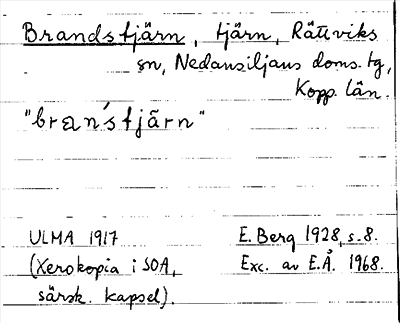 Brandstjärn, tjärn, Rättviks
sn, Nedansiljans doms. tg,
Kopp. län.
"bran´stjärn"
ULMA 1917
(Xerokopia i SOA,
särsk. kapsel).
E. Berg 1928, s. 8.
Exc. av E.Å. 1968.